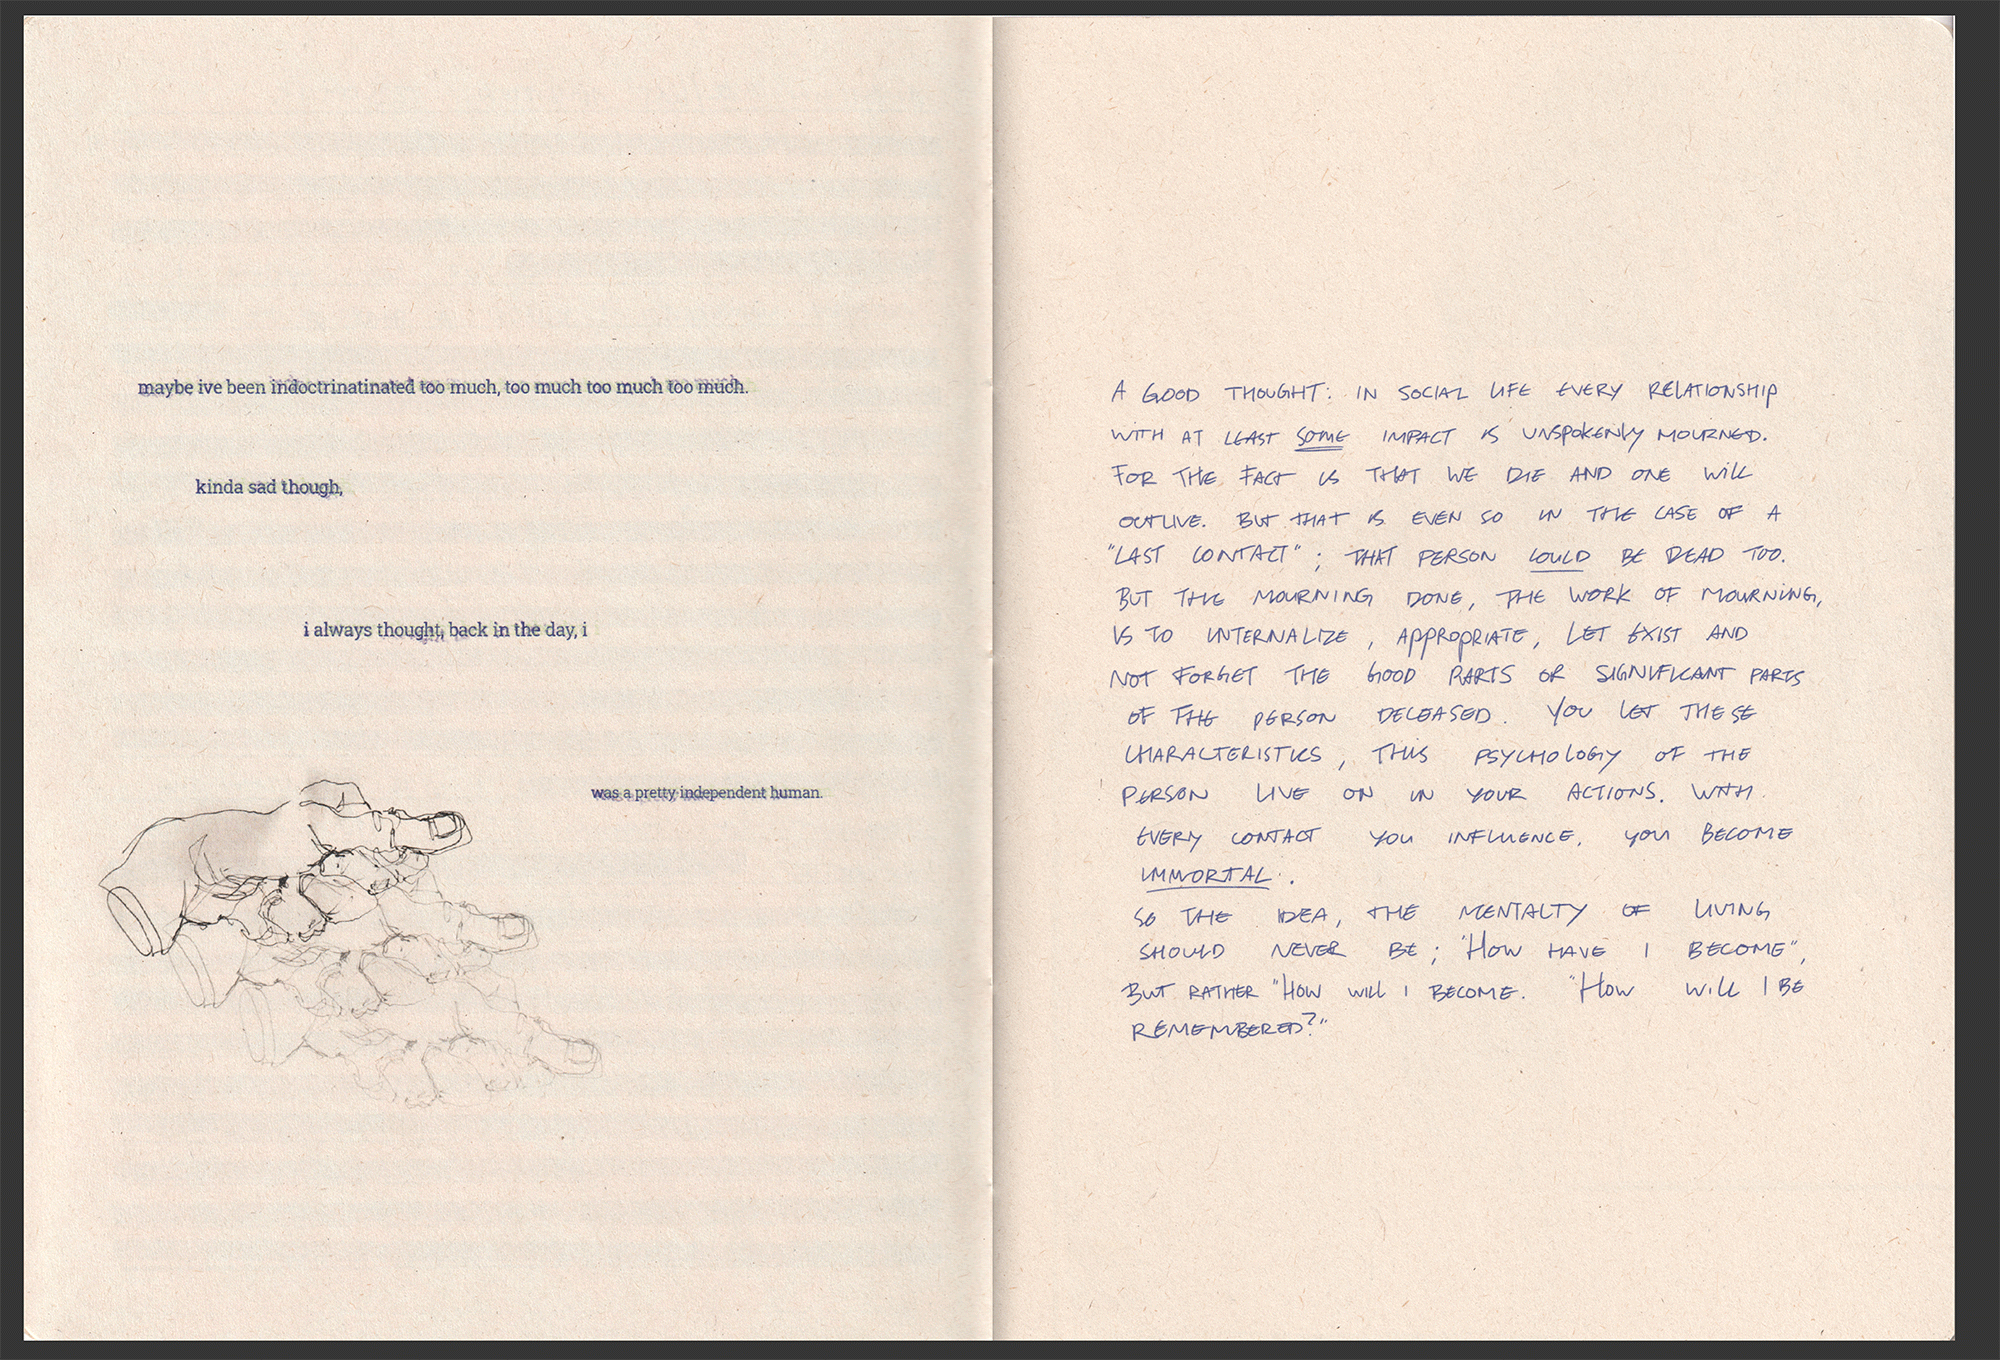 maybe ive been indoctrinatinated too much, too much too much too much.
kinda sad though,
i always thought, back in the day, i
was a pretty independent human.
A GOOD THOUGHT: IN SOCIAL LIFE EVERY RELATIONSHIP
WITH AT LEAST SOME IMPACT IS UNSPOKENLY MOURNED.
FOR THE FACT IS THAT WE DIE AND ONE WILL
OUTLIVE. BUT THAT IS EVEN SO IN THE CASE OF A
"LAST CONTACT"; THAT PERSON COULD BE DEAD TOO.
BUT THE MOURNING DONE, THE WORK OF MOURNING,
IS TO INTERNALIZE, APPROPRIATE, LET EXIST AND
NOT FORGET THE GOOD PARTS OR SIGNIFICANT PARTS
OF THE PERSON DECEASED. YOU LET THESE
CHARACTERISTICS, THIS PSYCHOLOGY OF THE
PERSON LIVE ON IN YOUR ACTIONS. WITH
EVERY CONTACT YOU INFLUENCE. YOU BECOME
IMMORTAL.
SO THE IDEA, THE MENTALTY OF LIVING
SHOULD NEVER BE; "HOW HAVE I BECOME",
BUT RATHER "HOW WILL I BECOME. "HOW WILL I BE
REMEMBERED?"